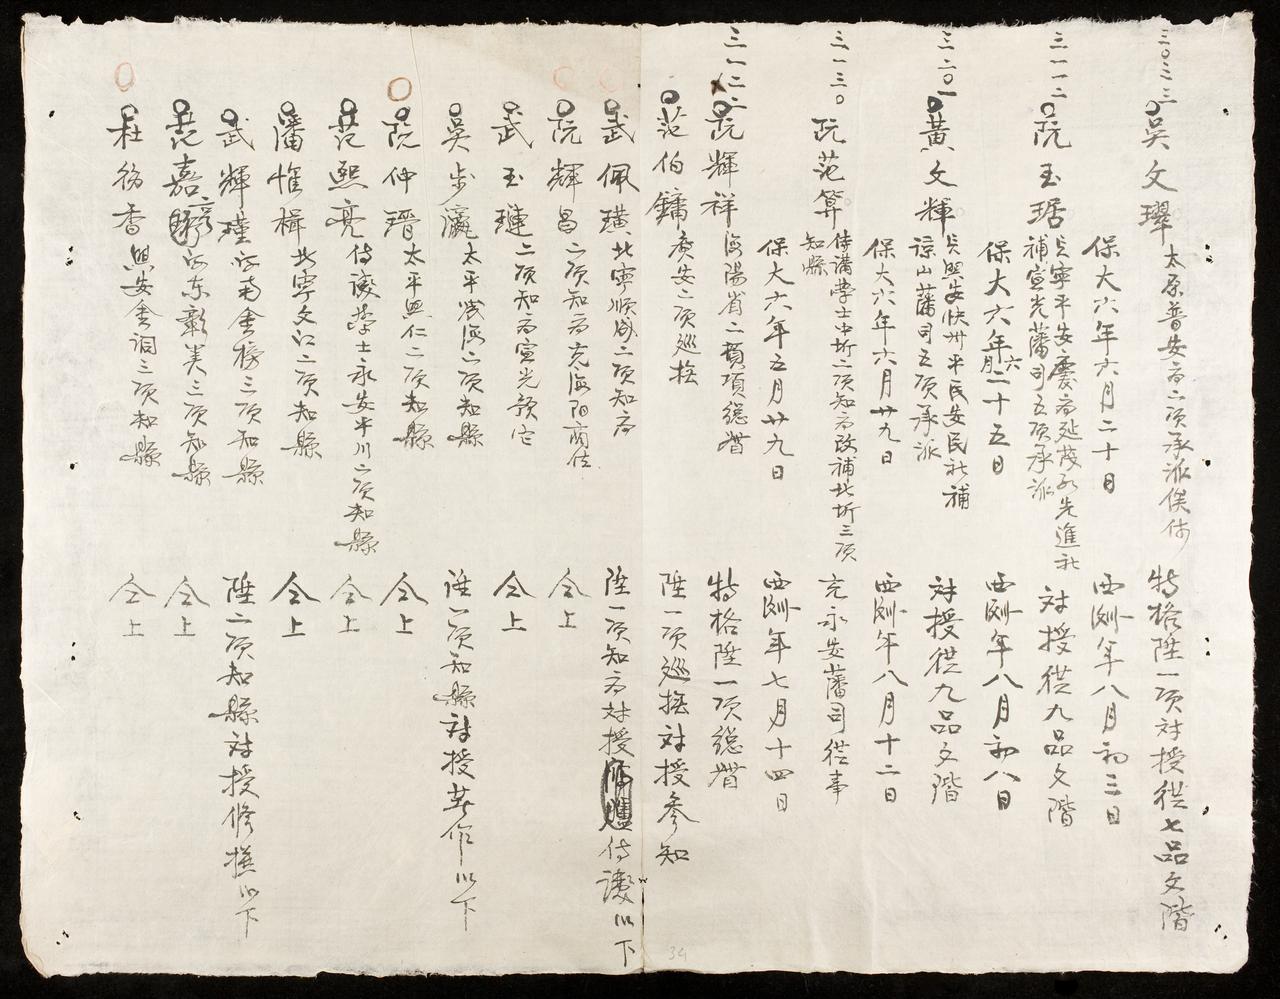 三〇三三
吳文琿太原普安府二項承派俟侍
特格陞一項対授從七品文階
保大六年六月二十日
西洌年八月初三日
三一一三
阮玉琚
長寧平安慶府延茂承先進社
補宣光藩司五項承派
対授從九品文階
保大六年六月二十五日
西洌年八月初八日
三二〇一
黃文輝
長興安快州平民安民社補
諒山藩司五項承派
対授從九品文階
保大六年六月廿九日
西洌年八月十二日
三一三〇
阮范算
侍講學士中圻二項知府改補北圻三項
知縣
充永安藩司從事
保大六年五月廿九日
西洌年七月十四日
三一二二
阮輝祥海陽省二項總督
特格陞一項總督
范伯鏞廣安二項巡撫
陞一項巡撫対授參知
武佩璜北寧順成二項知府
陞一項知府対授侍讀以下
阮輝昌二項知府充海陽商佐
仝上
武玉璉二項知府宣光
仝上
吳步瀛太平二項知縣
陞一項知縣対授著作以下
阮仲瑨太平興仁二項知縣
仝上
范熙亮侍讀學士永安平川二項知縣
仝上
潘惟楫北寧文江二項知縣
仝上
武輝瑾河南金榜三項知縣
陞一項知縣対授修撰以下
范嘉河東彰美三項知縣
仝上
杜務香興安金洞三項知縣
仝上
34